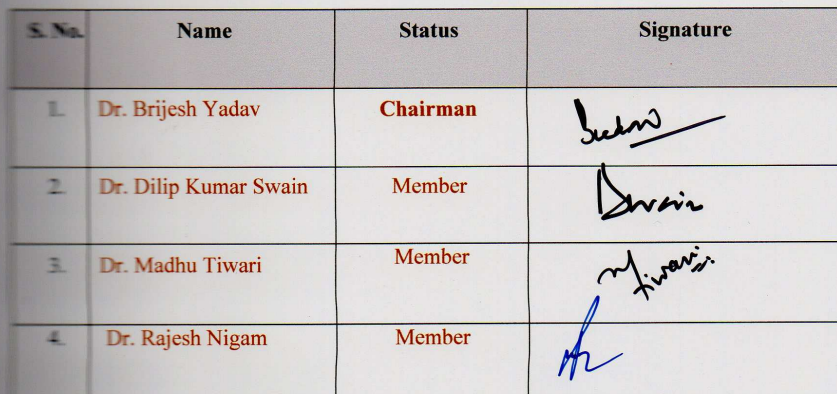 S. No. Name Status Signature
1. Dr. Brijesh Yadav Chairman
2. Dr. Dilip Kumar Swain Member Dswain
3. Dr. Madhu Tiwari Member MTiwari
4. Dr. Rajesh Nigam Member